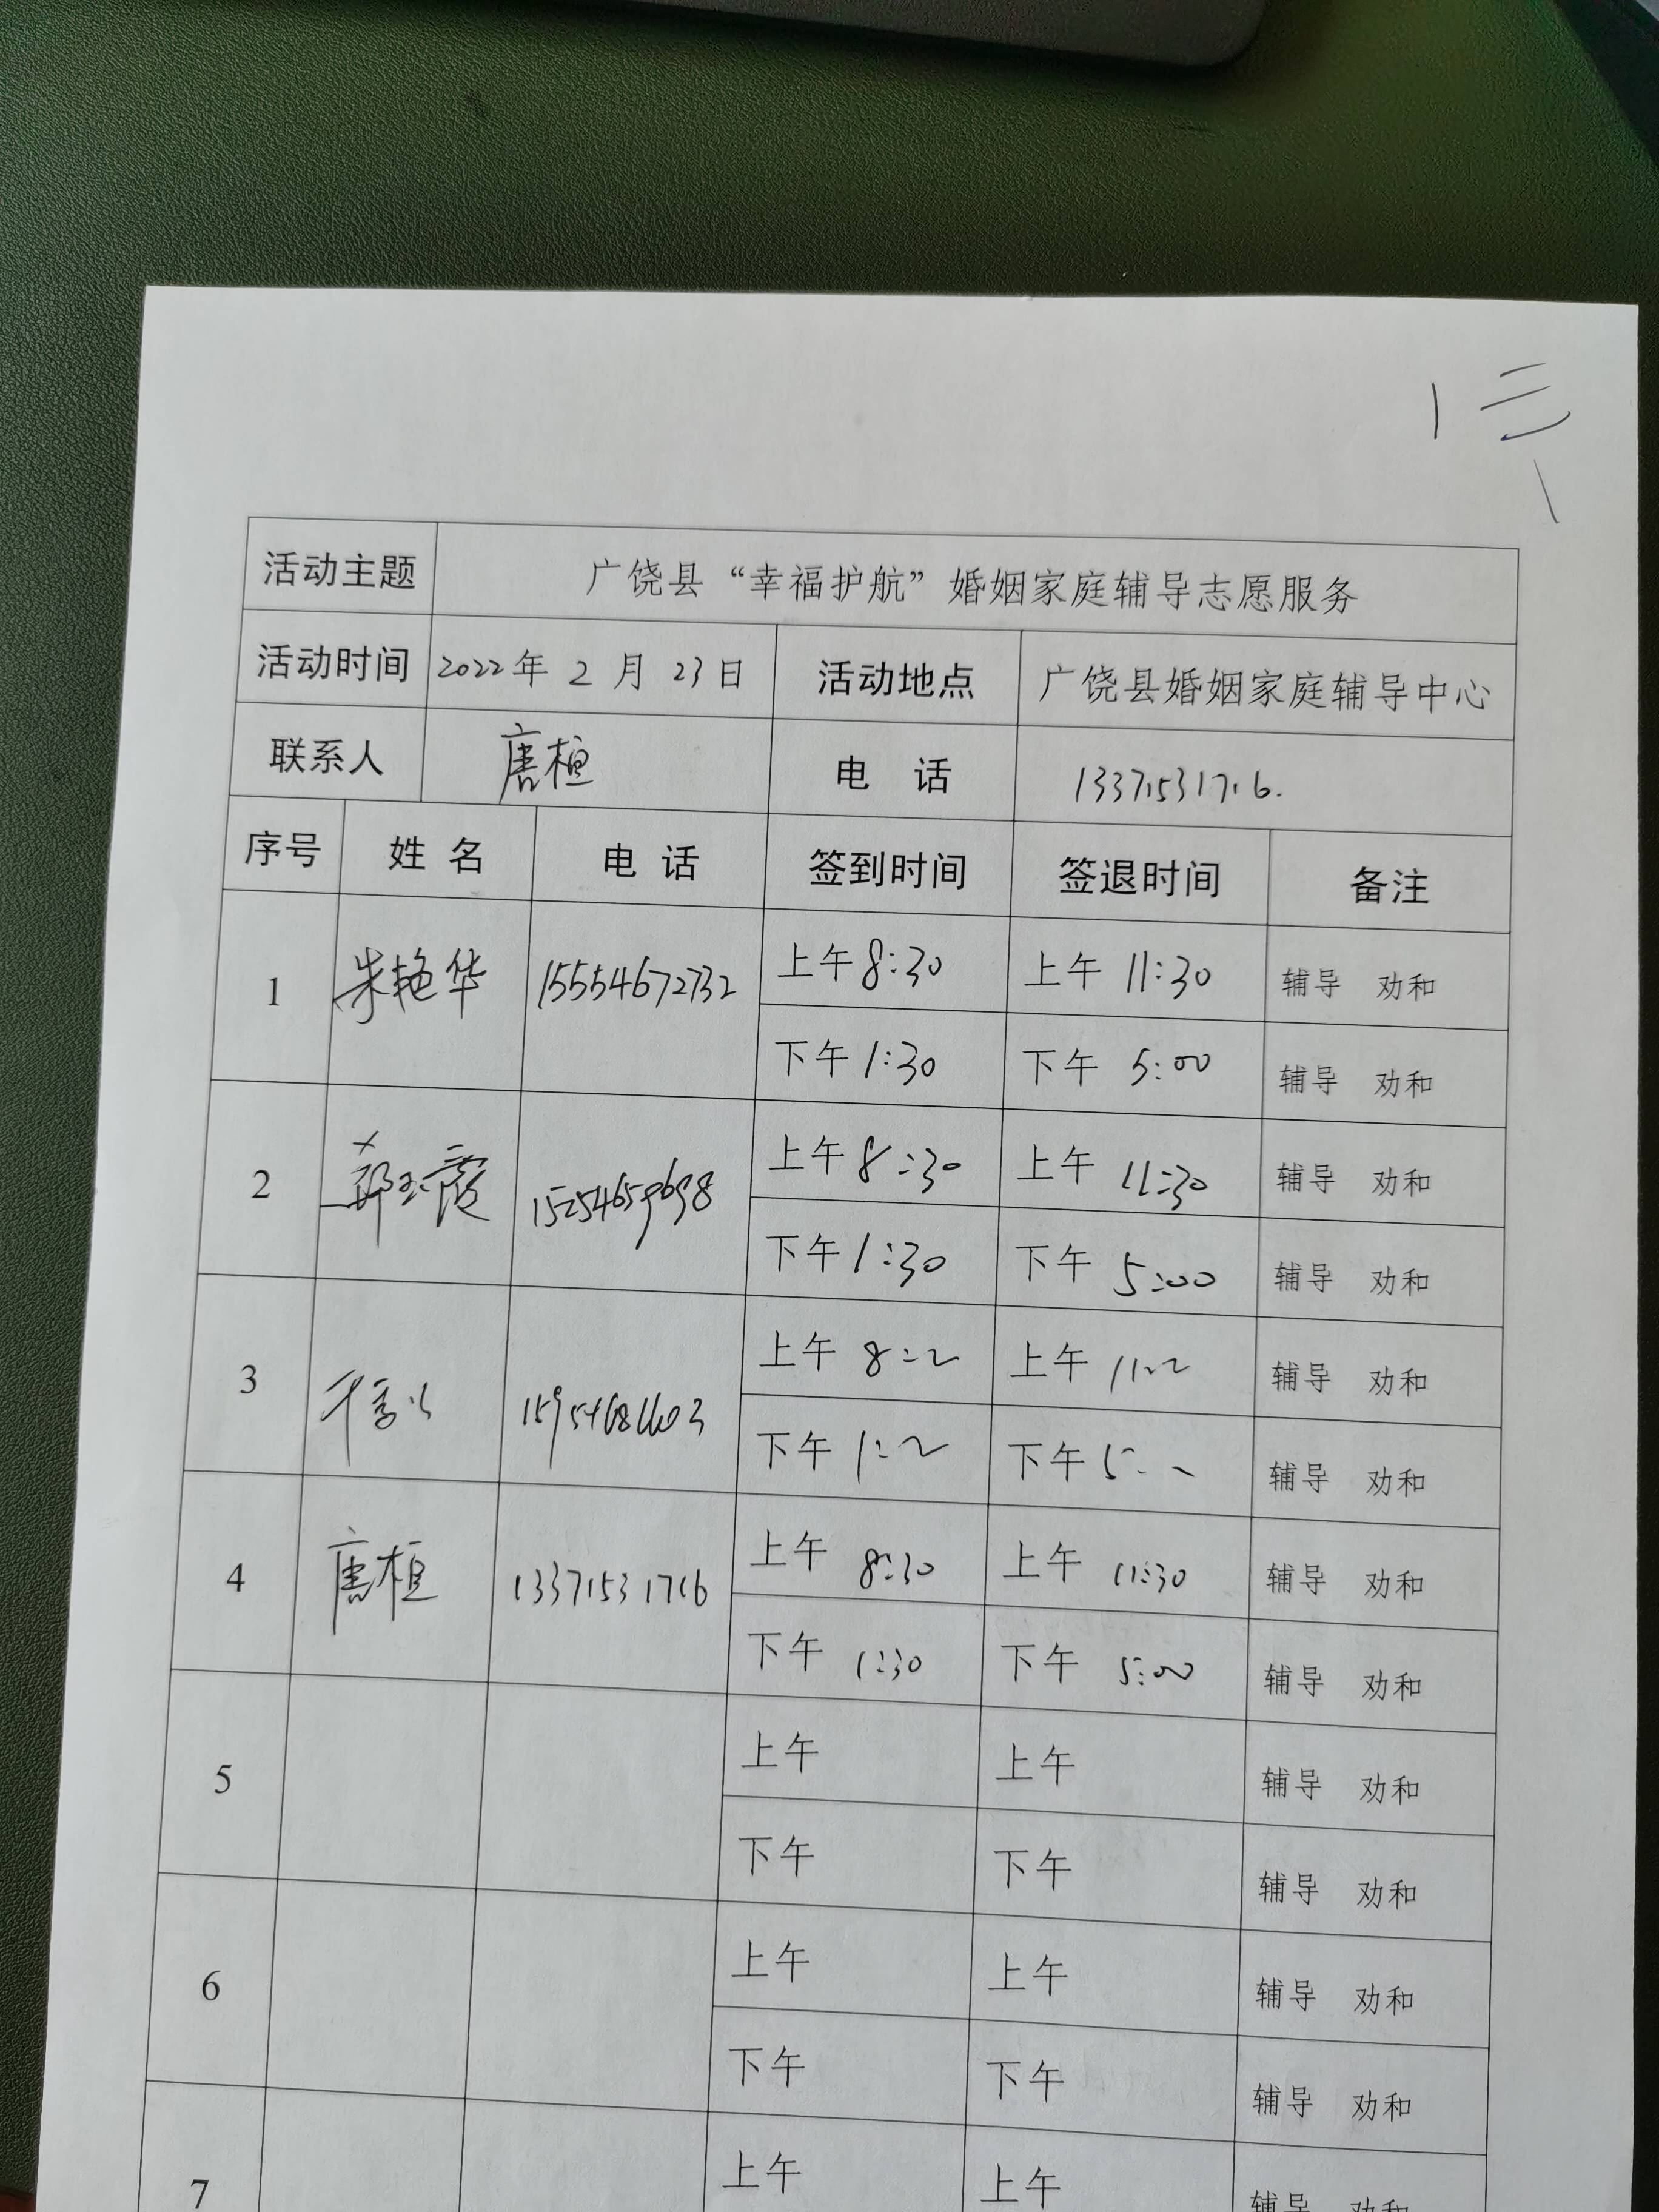 活动主题 广饶县“幸福护航”婚姻家庭辅导志愿服务
活动时间 2022年 2 月 23日 活动地点 广饶县婚姻家庭辅导中心
联系人 唐桓 电 话 13371531716.
序号 姓 名 电 话 签到时间 签退时间 备注
1 朱艳华 15554672732 上午 8:30 上午 11:30 辅导 劝和
下午 1:30 下午 5:00 辅导 劝和
2 15254659698 上午 8:30 上午 11:30 辅导 劝和
下午 1:30 下午 5:00 辅导 劝和
3 上午 上午 辅导 劝和
下午 下午 辅导 劝和
4 唐桓 13371531716 上午 8:30 上午 11:30 辅导 劝和
下午 1:30 下午 5:00 辅导 劝和
5 上午 上午 辅导 劝和
下午 下午 辅导 劝和
6 上午 上午 辅导 劝和
下午 下午 辅导 劝和
7 上午 上午 辅导 劝和